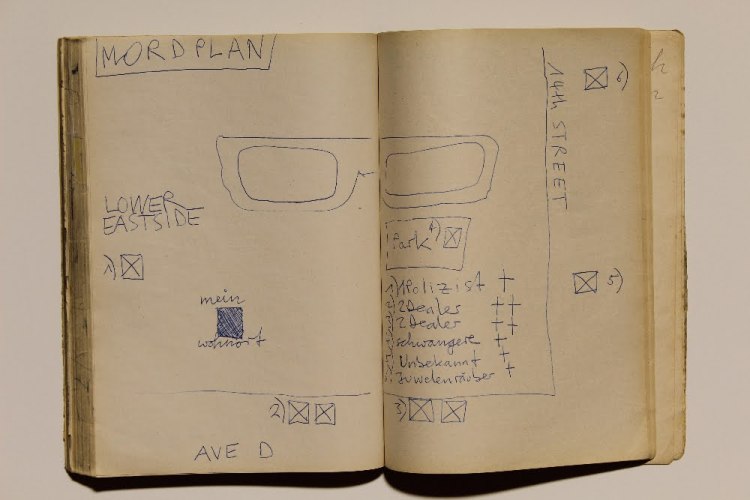 MORDPLAN
LOWER
EASTSIDE
1)
mein
wohnort
2)
AVE D
14th STREET
6)
Park 4)
5)
1) 1 Polizist †
2 Dealer ††
2 Dealer ††
schwangere †
Unbekannt †
Juwelenräuber †
3)